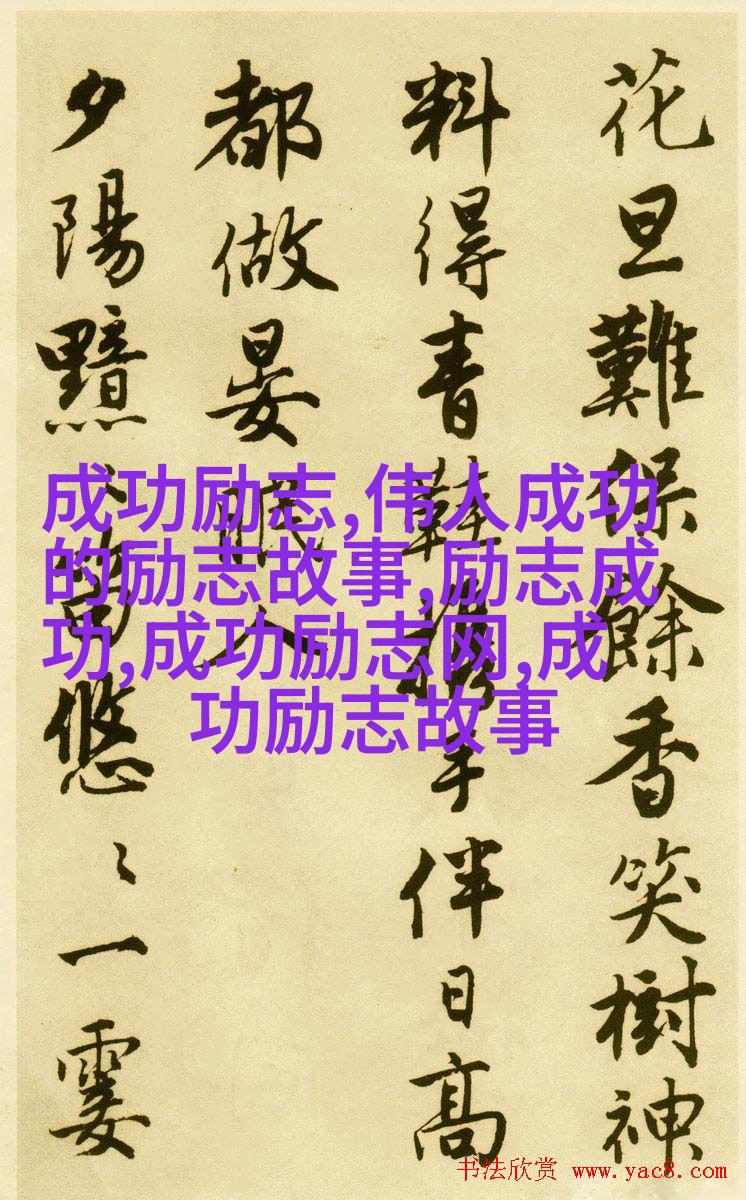 花旦難保餘香笑樹神
料得青鞋携手伴日高
都做晏眠人
夕陽黯悠〻一霎
成功励志,伟人成功
的励志故事,励志成
功,成功励志网,成
功励志故事
书法欣赏 www.yac8.com